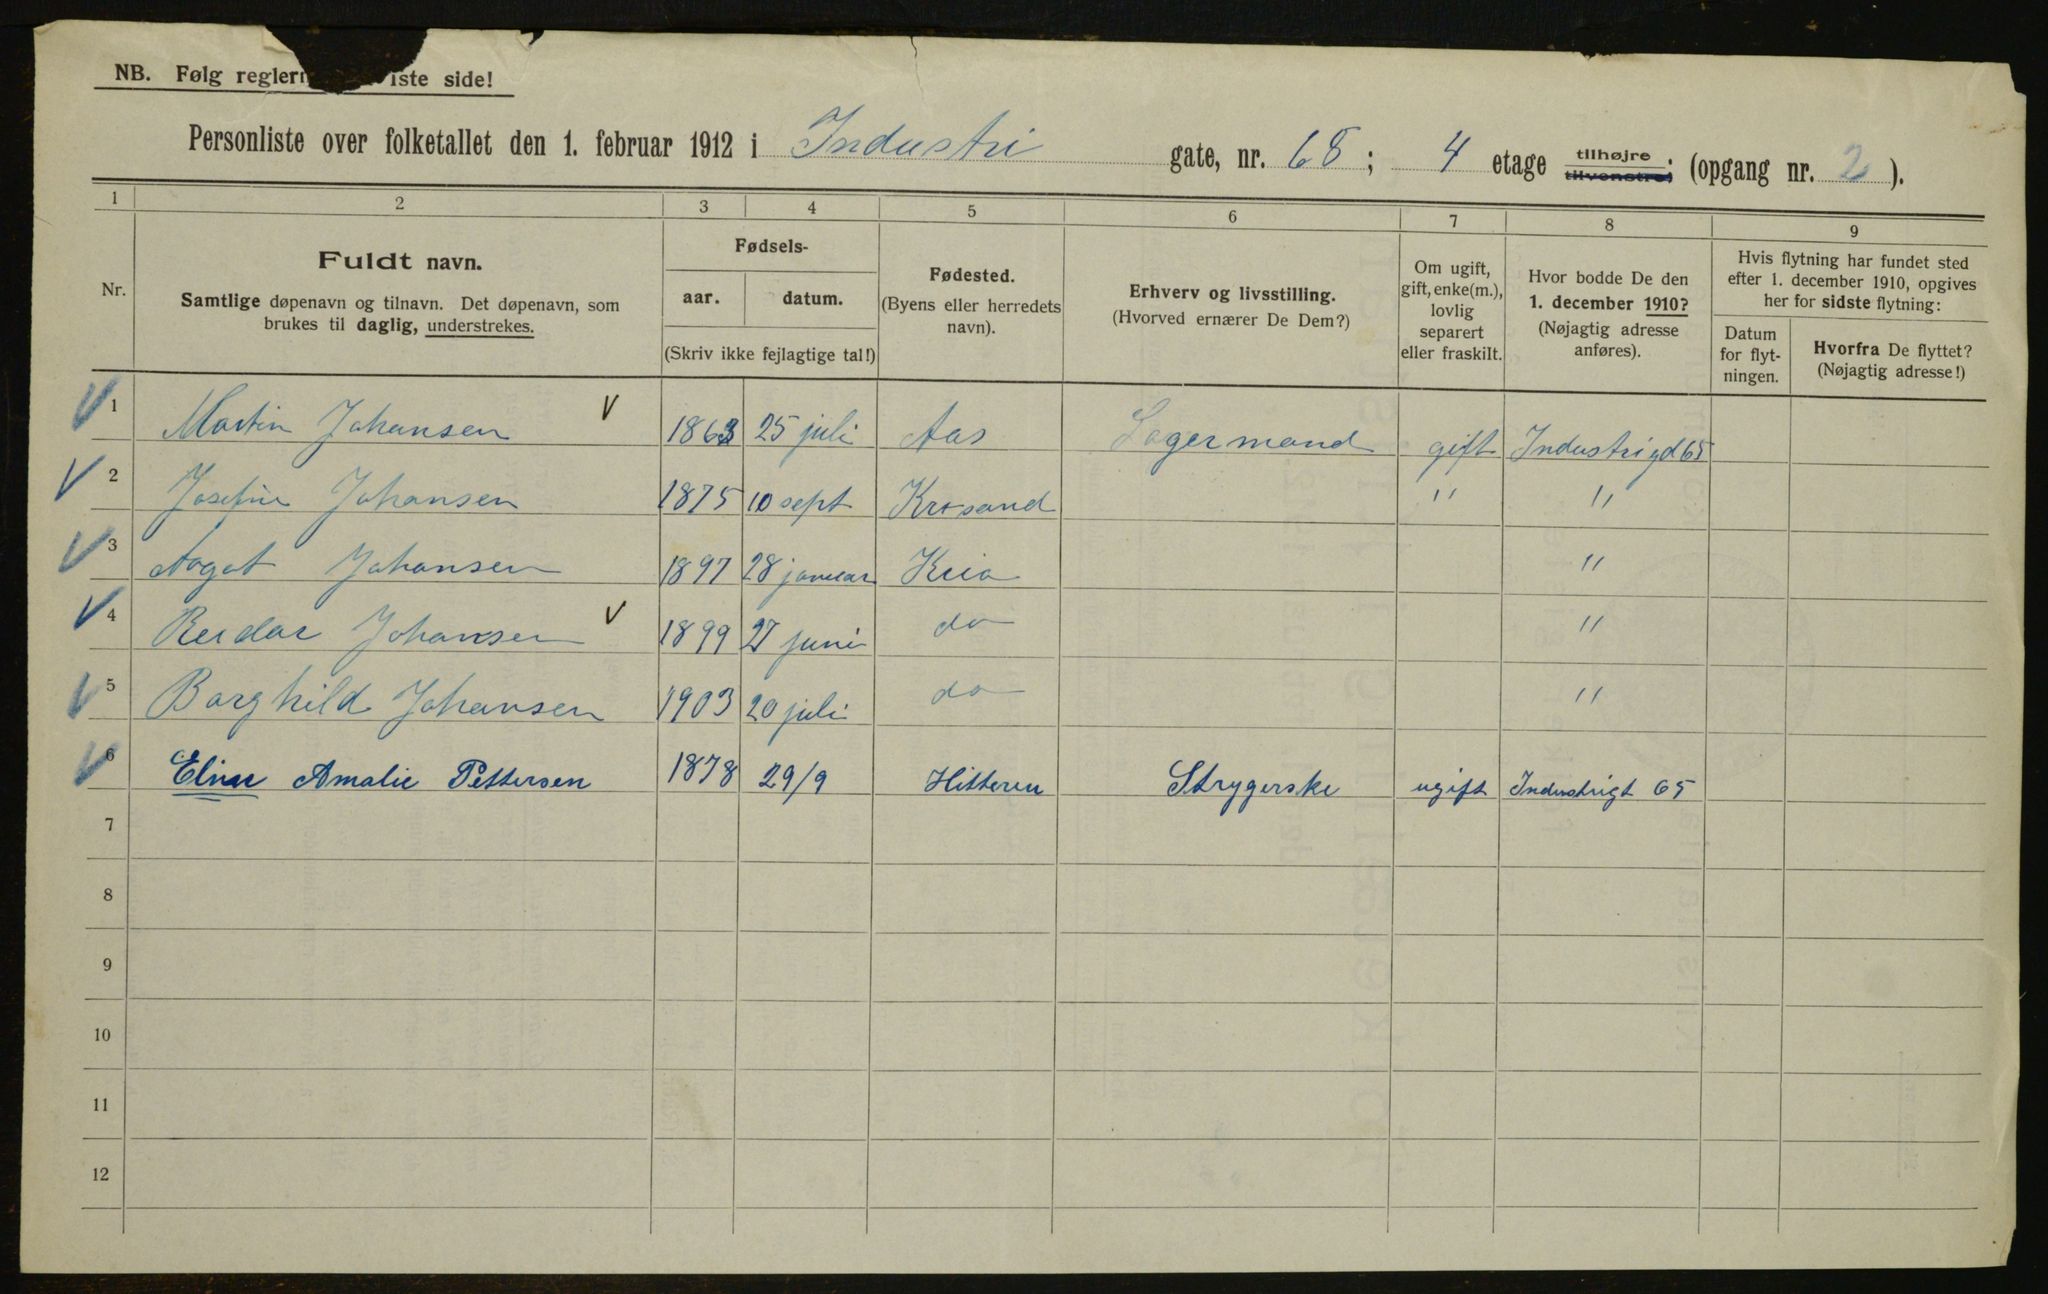 NB. Følg reglern iste side!
Personliste over folketallet den 1. februar 1912 i Industri gate, nr. 68; 4 etage tilhøjre tilvenstre. (opgang nr. 2).
1 2 3 4 5 6 7 8 9
Nr.
Fuldt navn.
Samtlige døpenavn og tilnavn. Det døpenavn, som
brukes til daglig, understrekes.
Fødsels-
aar. datum.
(Skriv ikke fejlagtige tal!)
Fødested.
(Byens eller herredets
navn).
Erhverv og livsstilling.
(Hvorved ernærer De Dem?)
Om ugift,
gift, enke(m.),
lovlig
separert
eller fraskilt.
Hvor bodde De den
1. december 1910?
(Nøjagtig adresse
anføres).
Hvis flytning har fundet sted
efter 1. december 1910, opgives
her for sidste flytning:
Datum
for flyt-
ningen.
Hvorfra De flyttet?
(Nøjagtig adresse!)
1 Martin Johansen 1863 25 juli Aas Lagermand gift Industrigd 65
2 Josefine Johansen 1875 10 sept Krsand " "
3 Aagot Johansen 1897 28 januar Kria "
4 Reidar Johansen 1899 27 juni do "
5 Borghild Johansen 1903 20 juli do "
6 Eline Amalie Pettersen 1878 29/9 Hitteren Strygerske ugift Industrigt 65
7
8
9
10
11
12